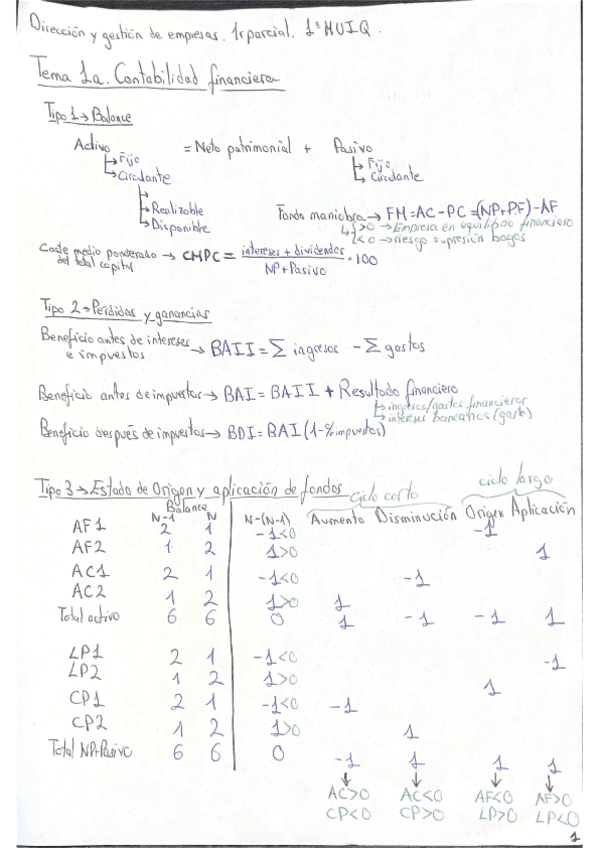 Dirección y gestión de empresas. 1r parcial. 1º MUIQ.
Tema 1a. Contabilidad financiera
Tipo 1→Balance
Activo = Neto patrimonial + Pasivo
↳Fijo ↳Fijo
↳Circulante ↳Circulante
↳Realizable
↳Disponible
Fondo maniobra→FM=AC-PC=(NP+PF)-AF
↳>0→Empresa en equilibrio financiero
↳<0→riesgo supresión pagos
Coste medio ponderado del total capital → CMPC = intereses + dividendos / NP+Pasivo · 100
Tipo 2→Pérdidas y ganancias
Beneficio antes de intereses e impuestos → BAII = Σ ingresos - Σ gastos
Beneficio antes de impuestos→ BAI = BAII + Resultado financiero
↳ingresos/gastos financieros
↳intereses bancarios (gasto)
Beneficio después de impuestos→ BDI = BAI (1-%impuestos)
Tipo 3→Estado de Origen y aplicación de fondos
Ciclo corto ciclo largo
Balance
N-1 N N-(N-1) Aumento Disminución Origen Aplicación
AF1 2 1 -1<0 -1
AF2 1 2 1>0 1
AC1 2 1 -1<0 -1
AC2 1 2 1>0 1
Total activo 6 6 0 1 -1 -1 1
LP1 2 1 -1<0 -1
LP2 1 2 1>0 1
CP1 2 1 -1<0 -1
CP2 1 2 1>0 1
Total NP+Pasivo 6 6 0 -1 1 1 1
↓ ↓ ↓ ↓
AC>0 AC<0 AF<0 AF>0
CP<0 CP>0 LP>0 LP<0
1